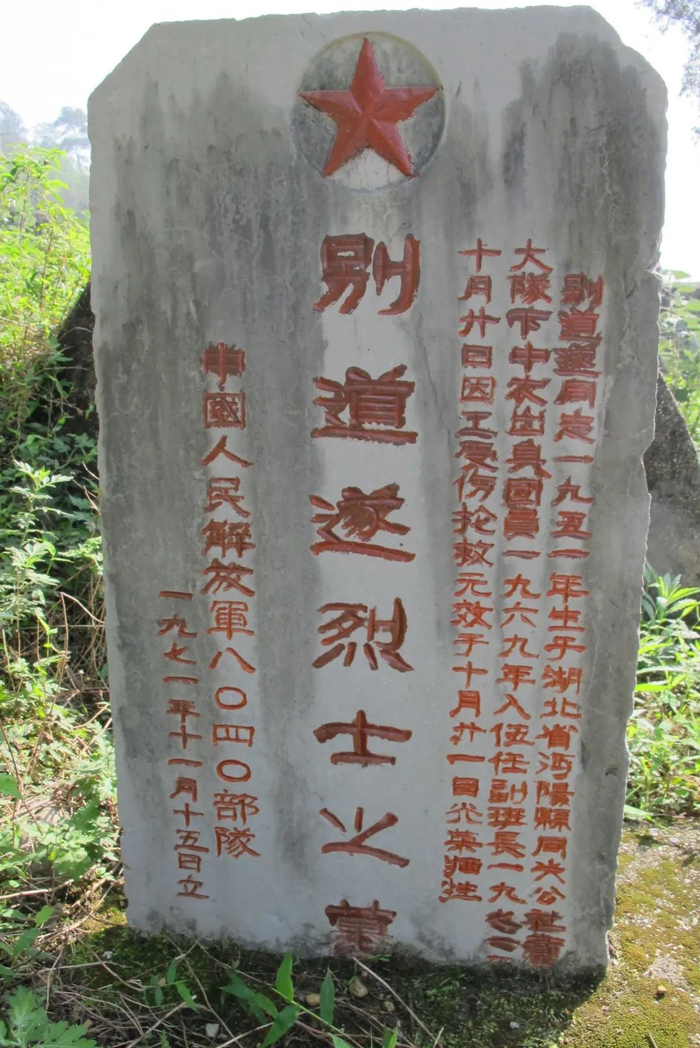 别道遂同志一九五一年生于湖北省沔陽縣同兴公社
大隊下中农出身团員一九六九年入伍任副班長一九七一
十月廿日因工受伤抢救无效于十月廿一日光荣牺牲
别道遂烈士之墓
中國人民解放軍八〇四〇部隊
一九七一年十一月十五日立